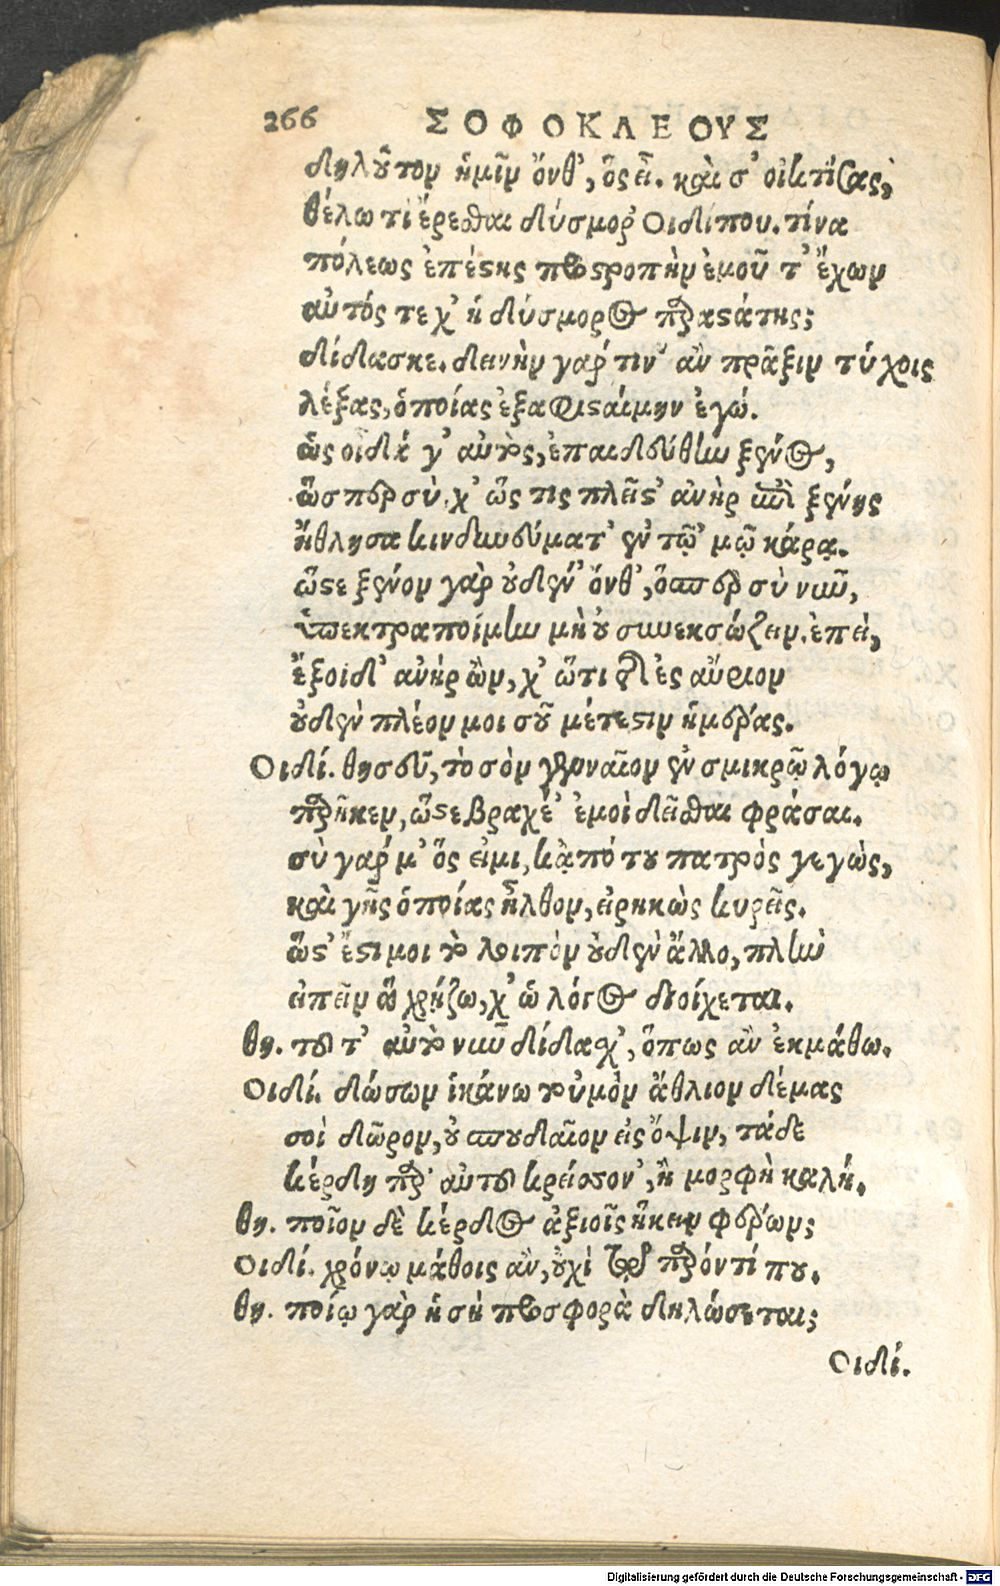 266 ΣΟΦΟΚΛΕΟΥΣ
δηλοῦτον ἡμῖν ὄνθ', ὃς εἶ. καὶ σ' οἰκτίσας,
θέλω τι ἔρεσθαι δύσμορ' Οἰδίπου. τίνα
πόλεως ἐπέστης προστροπὴν ἐμοῦ τ' ἔχων
αὐτός τε χ' ἡ δύσμορος παραστάτης;
δίδασκε. δεινὴν γάρ τιν' ἂν πρᾶξιν τύχοις
λέξας, ὁποίας ἐξαφισταίμην ἐγώ.
ὡς οἶδά γ' αὐτὸς, ἐπαιδεύθην ξένος,
ὥσπερ σύ. χ' ὥς τις πλεῖστ' ἀνὴρ ἐπὶ ξένης
ἤθλησα κινδυνεύματ' ἐν τῷ 'μῷ κάρᾳ.
ὥστε ξένον γὰρ οὐδέν' ὄνθ', ὅσπερ σὺ νῦν,
ὑπεκτραποίμην μὴ οὐ συνεκσώζειν. ἐπεὶ,
ἔξοιδ' ἀνὴρ ὢν, χ' ὥτι τῆς ἐς αὔριον
οὐδὲν πλέον μοι σοῦ μέτεστιν ἡμέρας.
Οἰδί. θησεῦ, τὸ σὸν γενναῖον ἐν σμικρῷ λόγῳ
παρῆκεν, ὥστε βραχέ' ἐμοὶ δεῖσθαι φράσαι.
σὺ γάρ μ' ὅς εἰμι, κἀπό του πατρὸς γεγὼς,
καὶ γῆς ὁποίας ἦλθον, εἰρηκὼς κυρεῖς.
ὥστ' ἔστι μοι τὸ λοιπὸν οὐδὲν ἄλλο, πλὴν
εἰπεῖν ἃ χρῄζω, χ' ὡ λόγος διοίχεται.
θη. τοῦτ' αὐτὸ νῦν δίδαχ', ὅπως ἂν ἐκμάθω.
Οἰδί. δώσων ἱκάνω τοὐμὸν ἄθλιον δέμας
σοὶ δῶρον, οὐ σπουδαῖον εἰς ὄψιν, τάδε
κέρδη παρ' αὐτοῦ κρείσσον', ἢ μορφὴ καλή.
θη. ποῖον δὲ κέρδος ἀξιοῖς ἥκειν φέρων;
Οἰδί. χρόνῳ μάθοις ἂν, οὐχὶ τῷ παρόντί που.
θη. ποίῳ γὰρ ἡ σὴ προσφορὰ δηλώσεται;
Οἰδί.
Digitalisierung gefördert durch die Deutsche Forschungsgemeinschaft - DFG